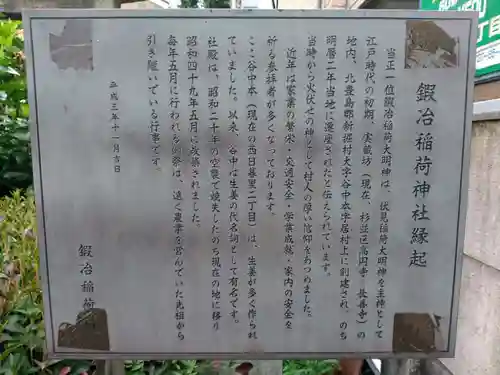 鍛冶稲荷神社縁起
当正一位鍛冶稲荷大明神は、伏見稲荷大明神を主神として
江戸時代の初期、宝蔵坊（現在、杉並区高円寺・長善寺）の
地内、北豊島郡新堀村大字谷中本字居村上に創建され、のち
明暦二年当地に遷座されたと伝えられています。
当時から火伏せの神として村人の厚い信仰をあつめました。
近年は家業の繁栄・交通安全・学業成就・家内の安全を
祈る参拝者が多くなっております。
ここ谷中本（現在の西日暮里二丁目）は、生姜が多く作られ
ていました。以来、谷中は生姜の代名詞として有名です。
社殿は、昭和二十年の空襲で焼失したのち現在の地に移り
昭和四十九年五月に改築されました。
毎年五月に行われる例祭は、遠く農業を営んでいた先祖から
引き継いでいる行事です。
平成三年十一月吉日
鍛冶稲荷